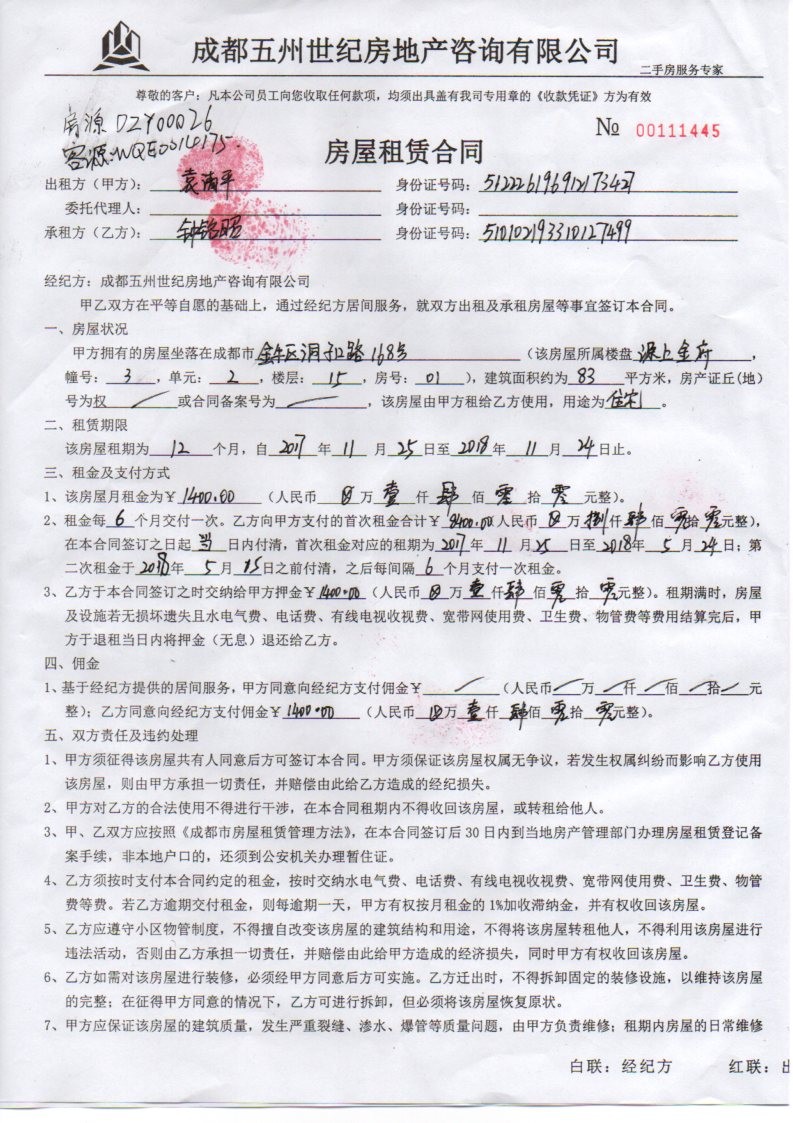 成都五州世纪房地产咨询有限公司
二手房服务专家
尊敬的客户：凡本公司员工向您收取任何款项，均须出具盖有我司专用章的《收款凭证》方为有效
房源 DZY00026
客源:WQE00310175
№ 00111445
房屋租赁合同
出租方（甲方）：袁清平 身份证号码：512226196912173427
委托代理人： 身份证号码：
承租方（乙方）：钟铭昭 身份证号码：510102193310127499
经纪方：成都五州世纪房地产咨询有限公司
甲乙双方在平等自愿的基础上，通过经纪方居间服务，就双方出租及承租房屋等事宜签订本合同。
一、房屋状况
甲方拥有的房屋坐落在成都市金牛区洞子口路168号（该房屋所属楼盘源上金府，
幢号：3，单元：2，楼层：15，房号：01），建筑面积约为83平方米，房产证丘(地)
号为权／或合同备案号为／，该房屋由甲方租给乙方使用，用途为住宅。
二、租赁期限
该房屋租期为12个月，自2017年11月25日至2018年11月24日止。
三、租金及支付方式
1、该房屋月租金为￥1400.00（人民币⊗万壹仟肆佰零拾零元整）。
2、租金每6个月交付一次。乙方向甲方支付的首次租金合计￥8400.00人民币⊗万捌仟肆佰零拾零元整），
在本合同签订之日起当日内付清，首次租金对应的租期为2017年11月25日至2018年5月24日；第
二次租金于2018年5月15日之前付清，之后每间隔6个月支付一次租金。
3、乙方于本合同签订之时交纳给甲方押金￥1400.00（人民币⊗万壹仟肆佰零拾零元整）。租期满时，房屋
及设施若无损坏遗失且水电气费、电话费、有线电视收视费、宽带网使用费、卫生费、物管费等费用结算完后，甲
方于退租当日内将押金（无息）退还给乙方。
四、佣金
1、基于经纪方提供的居间服务，甲方同意向经纪方支付佣金￥／（人民币／万／仟／佰／拾／元
整）；乙方同意向经纪方支付佣金￥1400.00（人民币⊗万壹仟肆佰零拾零元整）。
五、双方责任及违约处理
1、甲方须征得该房屋共有人同意后方可签订本合同。甲方须保证该房屋权属无争议，若发生权属纠纷而影响乙方使用
该房屋，则由甲方承担一切责任，并赔偿由此给乙方造成的经纪损失。
2、甲方对乙方的合法使用不得进行干涉，在本合同租期内不得收回该房屋，或转租给他人。
3、甲、乙双方应按照《成都市房屋租赁管理方法》，在本合同签订后30日内到当地房产管理部门办理房屋租赁登记备
案手续，非本地户口的，还须到公安机关办理暂住证。
4、乙方须按时支付本合同约定的租金，按时交纳水电气费、电话费、有线电视收视费、宽带网使用费、卫生费、物管
费等费。若乙方逾期交付租金，则每逾期一天，甲方有权按月租金的1%加收滞纳金，并有权收回该房屋。
5、乙方应遵守小区物管制度，不得擅自改变该房屋的建筑结构和用途，不得将该房屋转租他人，不得利用该房屋进行
违法活动，否则由乙方承担一切责任，并赔偿由此给甲方造成的经济损失，同时甲方有权收回该房屋。
6、乙方如需对该房屋进行装修，必须经甲方同意后方可实施。乙方迁出时，不得拆卸固定的装修设施，以维持该房屋
的完整；在征得甲方同意的情况下，乙方可进行拆卸，但必须将该房屋恢复原状。
7、甲方应保证该房屋的建筑质量，发生严重裂缝、渗水、爆管等质量问题，由甲方负责维修；租期内房屋的日常维修
白联：经纪方 红联：出